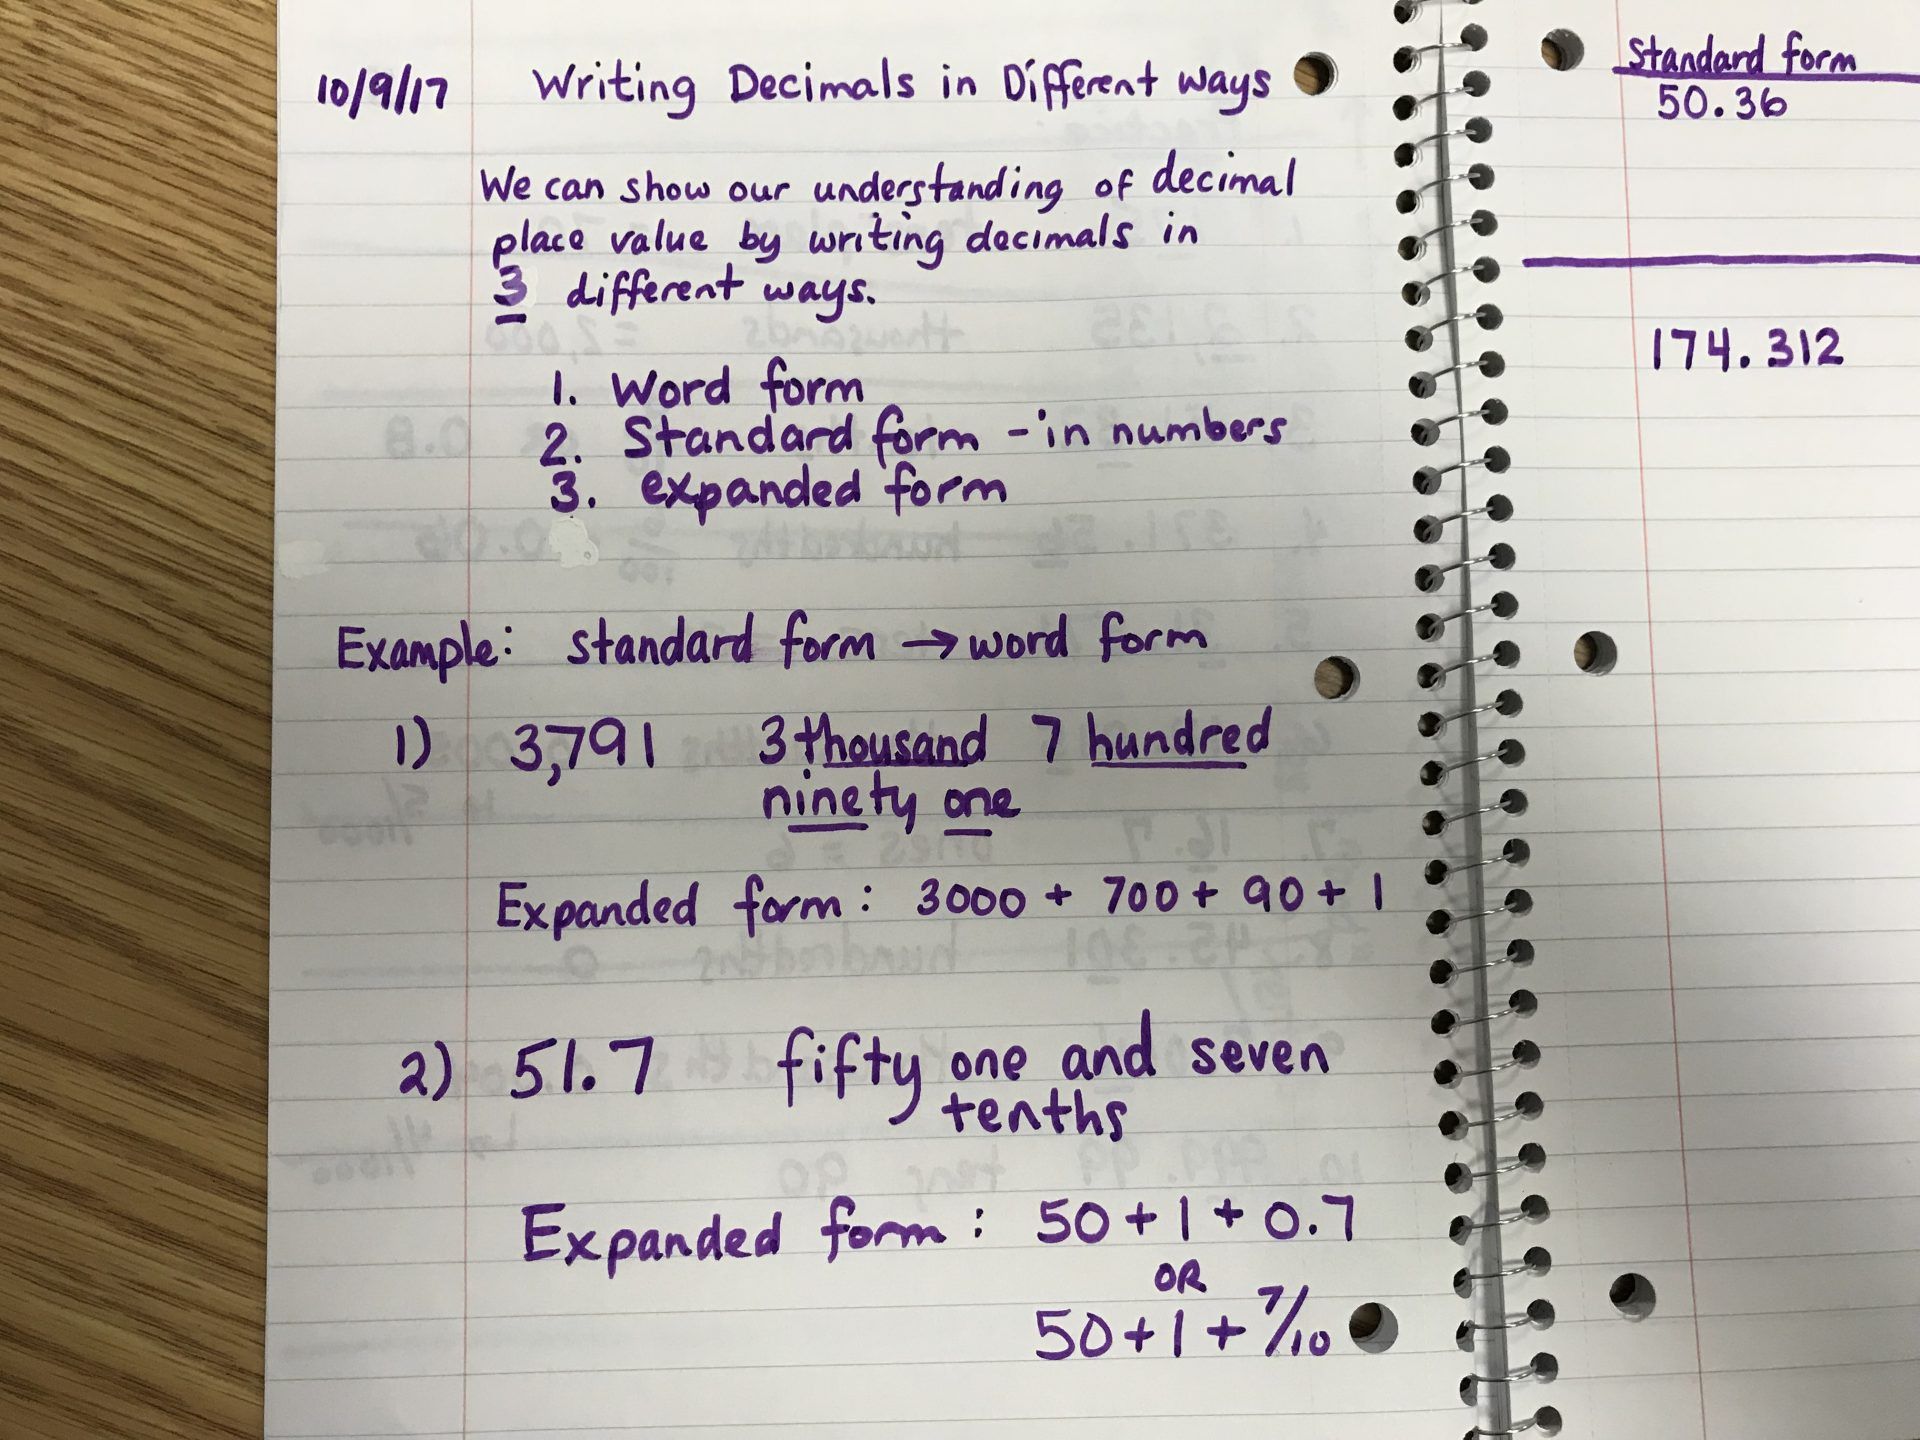 10/9/17 Writing Decimals in Different ways
We can show our understanding of decimal
place value by writing decimals in
3 different ways.
1. Word form
2. Standard form - in numbers
3. expanded form
Example: standard form → word form
1) 3,791 3 thousand 7 hundred
ninety one
Expanded form: 3000 + 700 + 90 + 1
2) 51.7 fifty one and seven
tenths
Expanded form: 50 + 1 + 0.7
OR
50 + 1 + 7/10
Standard form
50.36
174.312